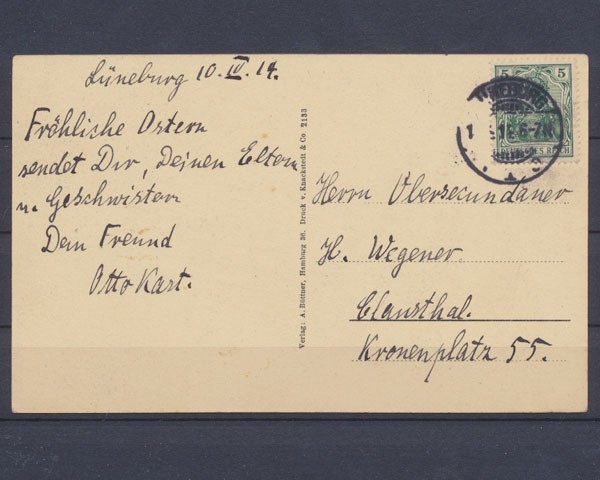 Lüneburg 10. IV. 14.
Fröhliche Ostern
sendet Dir, Deinen Eltern
u. Geschwistern
Dein Freund
Otto Kart.
Verlag: A. Büttner, Hamburg 36. Druck v. Knackstedt & Co 2133
5 5
6-7
Herrn Obersecundaner
H. Wegener
Clausthal.
Kronenplatz 55.